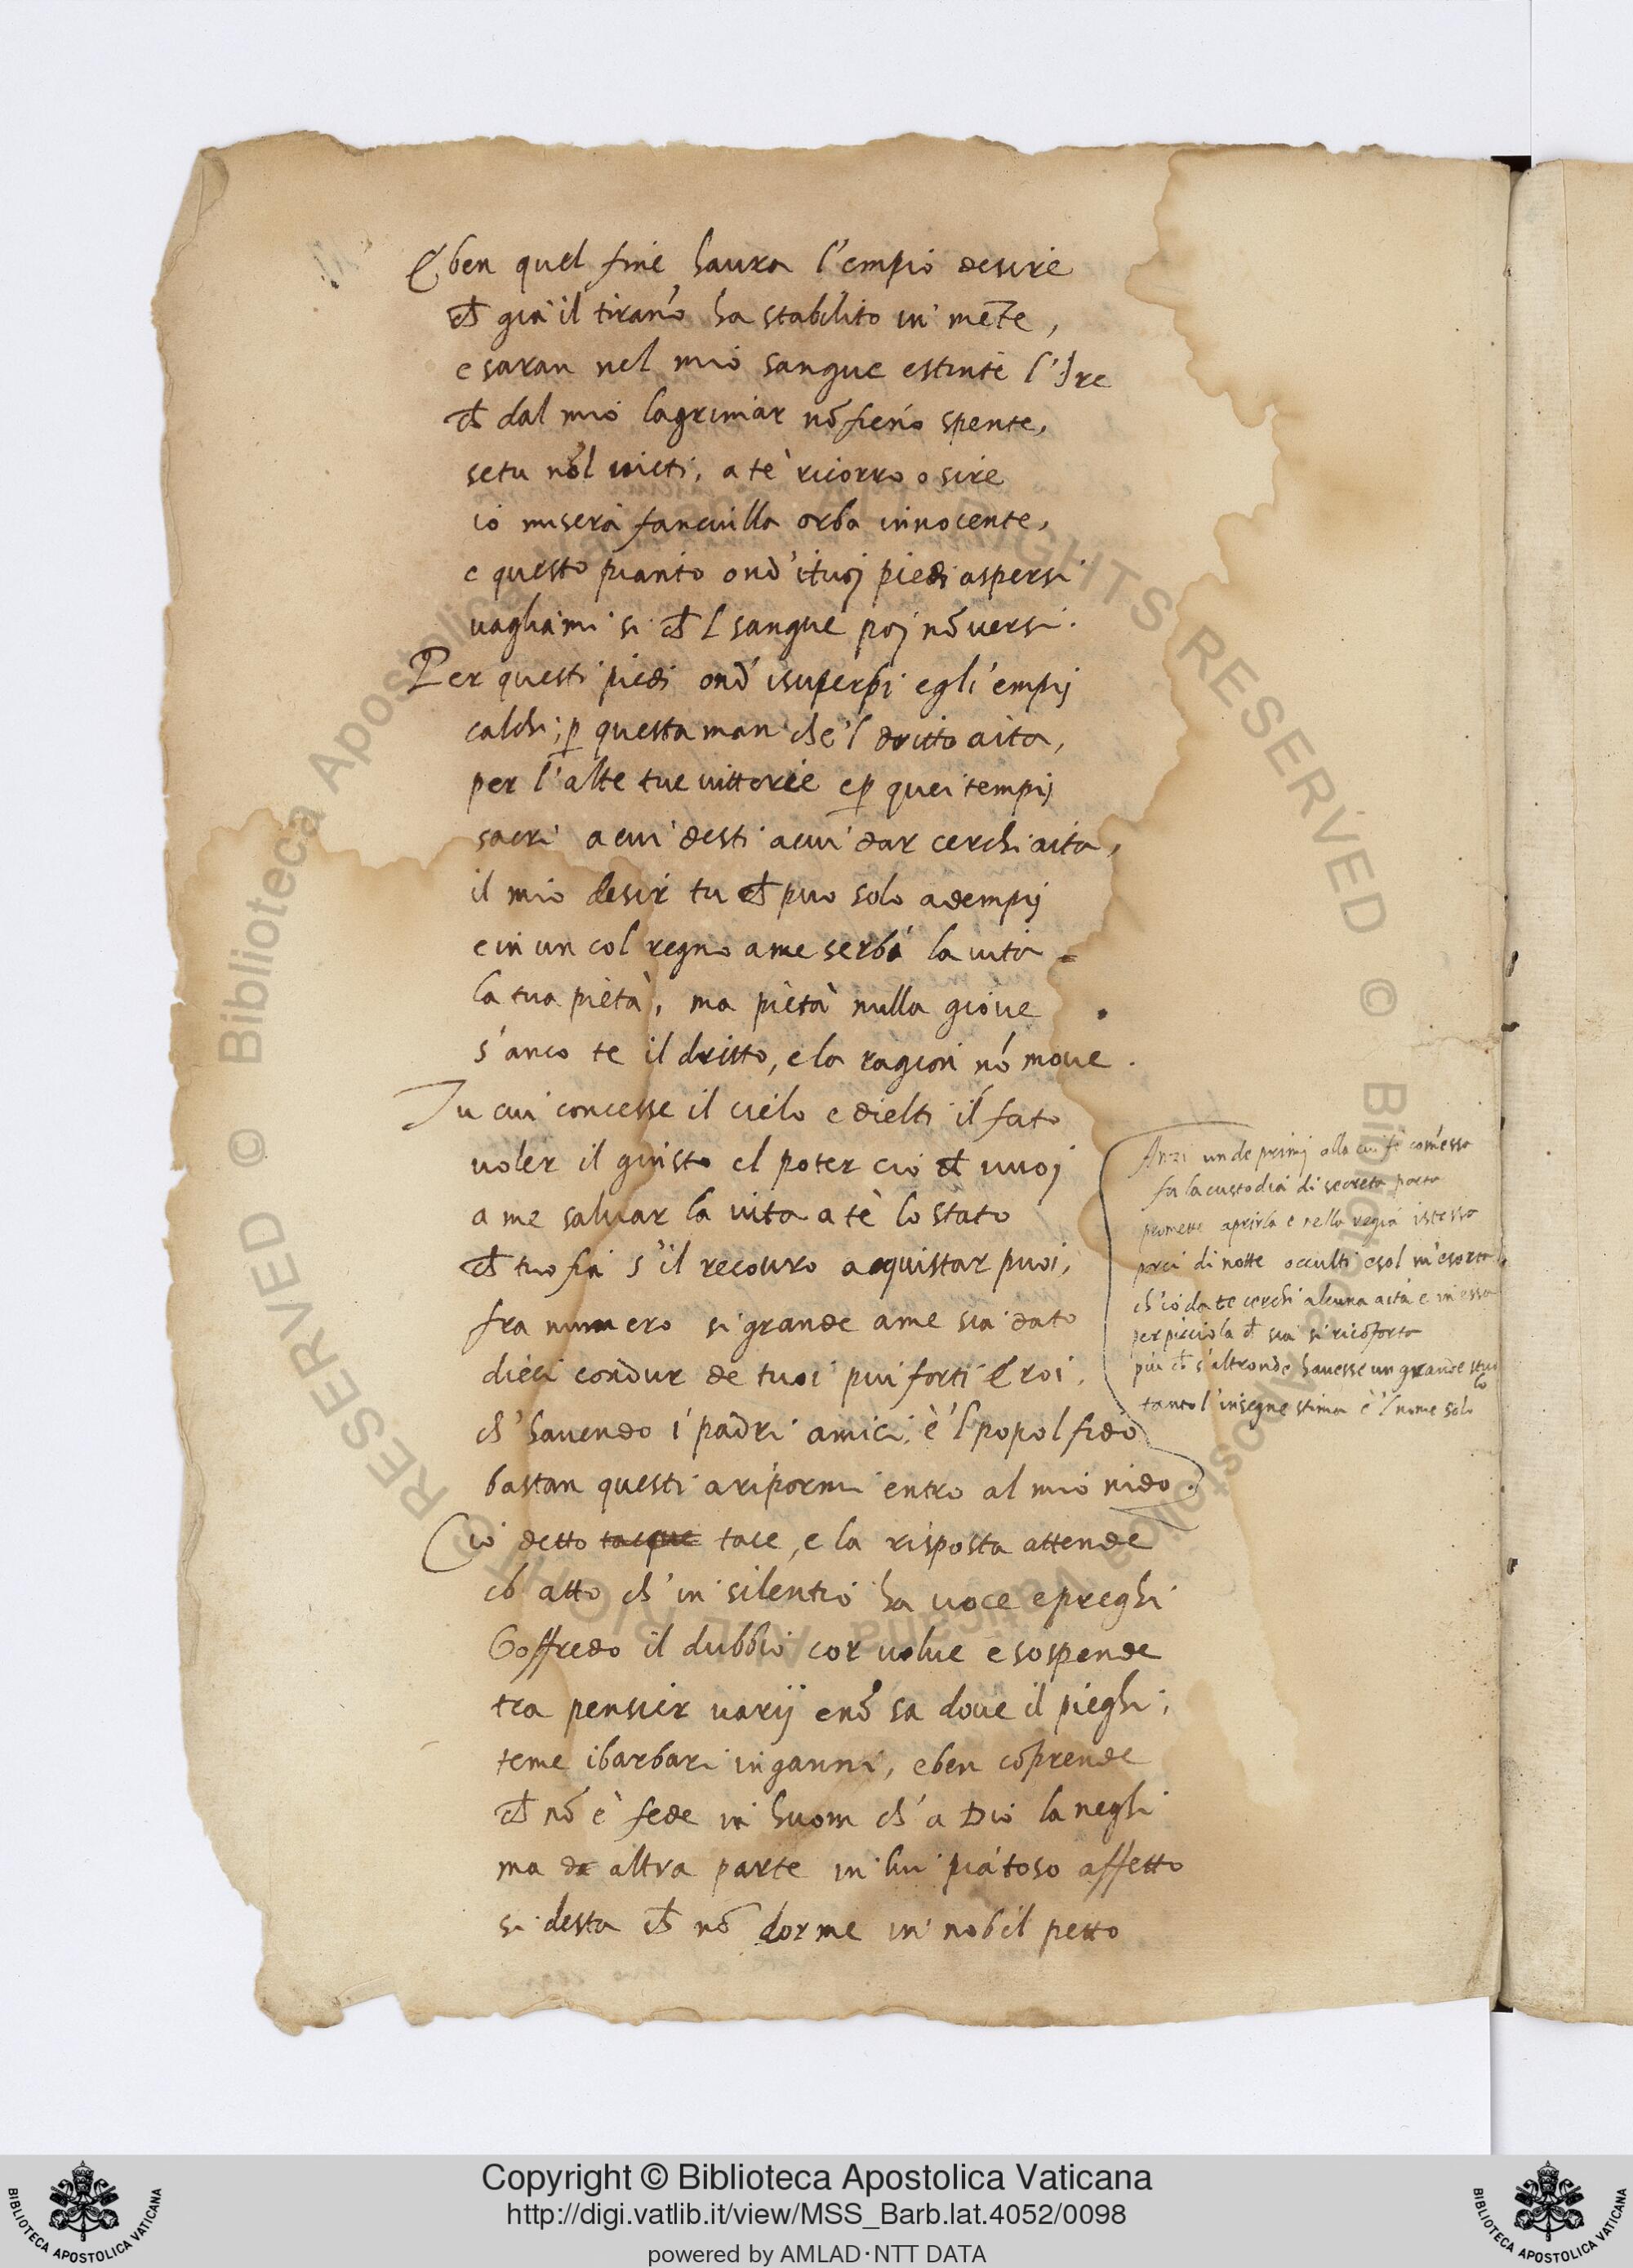 E ben quel fine haura l'empio desire
ch̄ gia il tirāno ha stabilito in mēte,
e saran nel mio sangue estinte l'Ire
ch̄ dal mio lagrimar nō fieño spente,
se tu nōl vieti, a tè ricorro o sire
io misera fanciulla orba innocente,
e questo pianto ond' i tuoj piedi aspersi
vagliami si ch̄ l sangue poj nō versi.
Per questi piedi ond' i superbi e gli empij
calchi; ꝑ questa man che'l dritto aita,
per l'alte tue vittorie e ꝑ quei tempij
sacri a cui desti a cui dar cerchi aita,
il mio desir tu ch̄ puo solo adempij
e in un col regno a me serba la vita
la tua pietà, ma pietà nulla giove
s'anco te il dritto, e la ragion nō move.
Tu cui concesse il cielo e dielti il fato
voler il giusto el poter ciò ch̄ vuoj
a me salvar la vita a tè lo stato
ch̄ tuo fia s'il recovro acquistar puoi,
fra numero si grande a me sia dato
dieci condur de tuoi piu forti Eroi,
ch' havendo i padri amici, è'l popol fido
bastan questi a ripormi entro al mio nido.
Anzi un de primj alla cui fè com̄essa
fu la custodia di secreta porta
promette aprirla e nella regia istessa
porci di notte occulti e sol m'esorta
ch'io da te cerchi alcuna aita e in essa
per picciola ch̄ sia si ricōforta
piu ch̄ s'altronde havesse un grande stuolo
tanto l'insegne stima è'l nome solo
Ciò detto tacque tace, e la risposta attende
cō atto ch' in silentio ha voce e preghi
Goffredo il dubbio cor volve e sospende
tra pensier varij e nō sa dove il pieghi;
teme i barbari inganni, e ben cōprende
ch̄ nō è fede in huom ch' a Dio la neghi
ma da altra parte in lui piatoso affetto
si desta ch̄ nō dorme in nobil petto
Biblioteca Apostolica Vaticana ALL RIGHTS RESERVED ©
Copyright © Biblioteca Apostolica Vaticana
http://digi.vatlib.it/view/MSS_Barb.lat.4052/0098
powered by AMLAD·NTT DATA
BIBLIOTECA APOSTOLICA VATICANA
BIBLIOTECA APOSTOLICA VATICANA